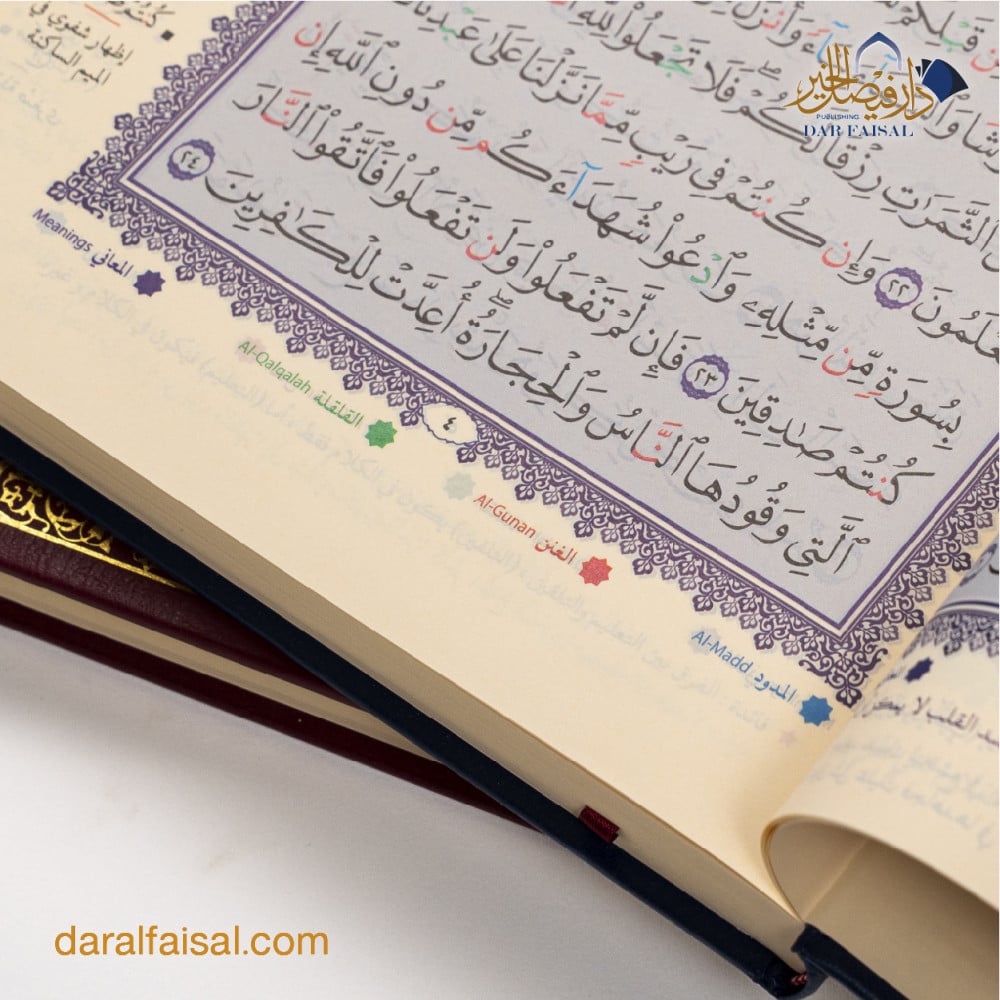 دار فيصل الخير
PUBLISHING
DAR FAISAL
كُنتُمْ
إظهار شفوي في
الميم الساكنة
قَبْلِكُمْ
وَأَنزَلَ
ٱلثَّمَرَٰتِ رِزْقًا لَّكُمْ ۖ فَلَا تَجْعَلُوا۟ لِلَّهِ
عْلَمُونَ ٢٢ وَإِن كُنتُمْ فِى رَيْبٍ مِّمَّا نَزَّلْنَا عَلَىٰ عَبْدِنَا
بِسُورَةٍ مِّن مِّثْلِهِۦ وَٱدْعُوا۟ شُهَدَآءَكُم مِّن دُونِ ٱللَّهِ إِن
كُنتُمْ صَٰدِقِينَ ٢٣ فَإِن لَّمْ تَفْعَلُوا۟ وَلَن تَفْعَلُوا۟ فَٱتَّقُوا۟ ٱلنَّارَ
ٱلَّتِى وَقُودُهَا ٱلنَّاسُ وَٱلْحِجَارَةُ ۖ أُعِدَّتْ لِلْكَٰفِرِينَ ٢٤
٤
المدود Al-Madd
الغنن Al-Gunan
القلقلة Al-Qalqalah
المعاني Meanings
القلب لا
daralfaisal.com